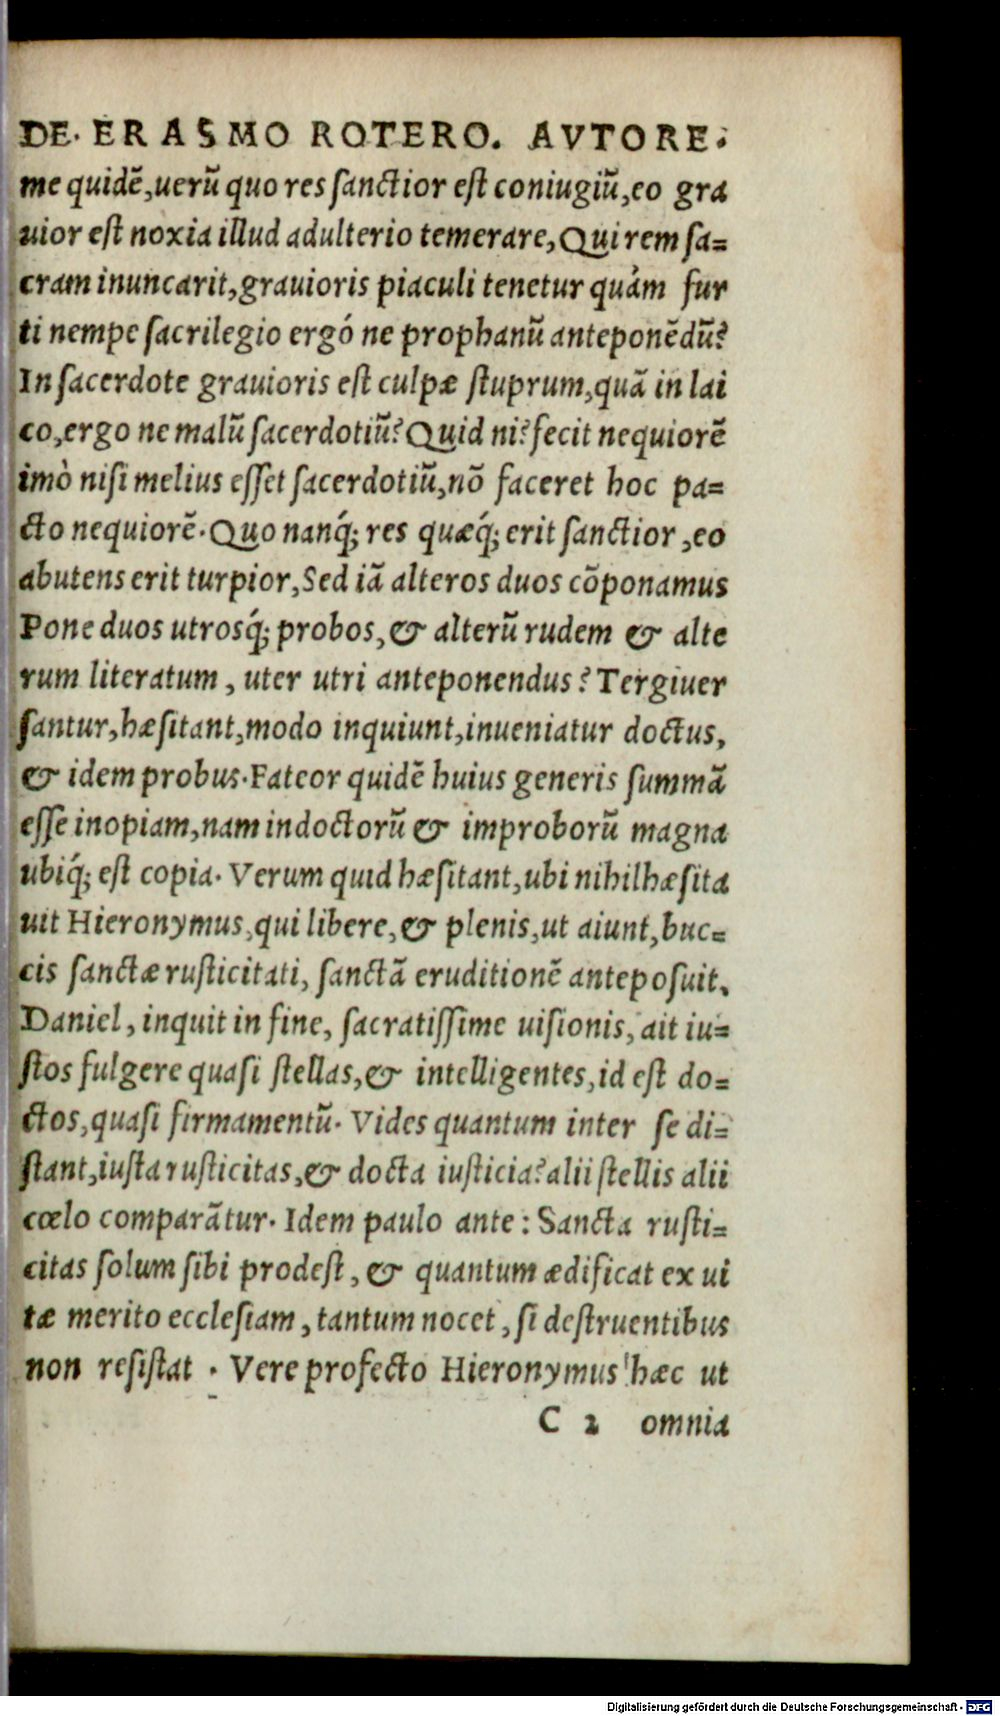 DE. ERASMO ROTERO. AVTORE.
me quidē,uerū quo res sanctior est coniugiū,eo gra
uior est noxia illud adulterio temerare,Qui rem sa=
cram inuncarit,grauioris piaculi tenetur quàm fur
ti nempe sacrilegio ergó ne prophanū anteponēdū?
In sacerdote grauioris est culpæ stuprum,quā in lai
co,ergo ne malū sacerdotiū? Quid ni? fecit nequiorē
imò nisi melius esset sacerdotiū,nō faceret hoc pa=
cto nequiorē. Quo nanq́; res quæq́; erit sanctior ,eo
abutens erit turpior, Sed iā alteros duos cōponamus
Pone duos utrosq́; probos, & alterū rudem & alte
rum literatum , uter utri anteponendus? Tergiuer
santur,hæsitant,modo inquiunt,inueniatur doctus,
& idem probus. Fateor quidē huius generis summā
esse inopiam,nam indoctorū & improborū magna
ubiq́; est copia. Verum quid hæsitant,ubi nihil hæsita
uit Hieronymus,qui libere, & plenis,ut aiunt,buc=
cis sanctæ rusticitati, sanctā eruditionē anteposuit.
Daniel, inquit in fine, sacratissime uisionis, ait iu=
stos fulgere quasi stellas,& intelligentes,id est do=
ctos,quasi firmamentū. Vides quantum inter se di=
stant,iusta rusticitas,& docta iusticia? alii stellis alii
cœlo comparātur. Idem paulo ante: Sancta rusti=
citas solum sibi prodest, & quantum ædificat ex ui
tæ merito ecclesiam, tantum nocet, si destruentibus
non resistat . Vere profecto Hieronymus hæc ut
C 2 omnia
Digitalisierung gefördert durch die Deutsche Forschungsgemeinschaft - DFG